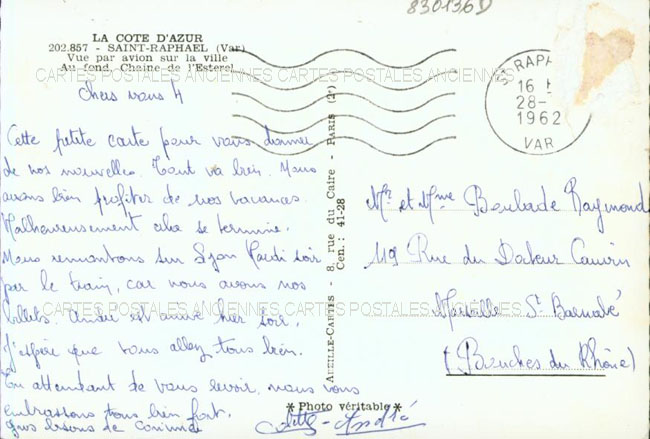 830136D
LA COTE D'AZUR
202.857 - SAINT-RAPHAEL (Var)
Vue par avion sur la ville
Au fond, Chaine de l'Esterel
CARTES POSTALES ANCIENNES CARTES POSTALES ANCIENNES
Chers vous 4
Cette petite carte pour vous donner
de nos nouvelles. Tout va bien. Nous
avons bien profiter de nos vacances.
Malheureusement cela se termine.
Nous remontons sur Lyon Mardi soir
par le train, car nous avons nos
billets. André est arrivé hier soir.
J'espère que vous allez tous bien.
En attendant de vous revoir, nous vous
embrassons tous bien fort.
Gros bisons de Corinne
André
ABEILLE-CARTES - 8, rue du Caire - PARIS (2e)
Cen. : 41-28
*Photo véritable*
ST RAPHA
16 H
28 -
1962
VAR
Mr et Mme Boulade Raymond
119 Rue du Docteur Cauvin
Marseille St Barnabé
(Bouches du Rhône)
CARTES POSTALES ANCIENNES CARTES POSTALES ANCIENNES